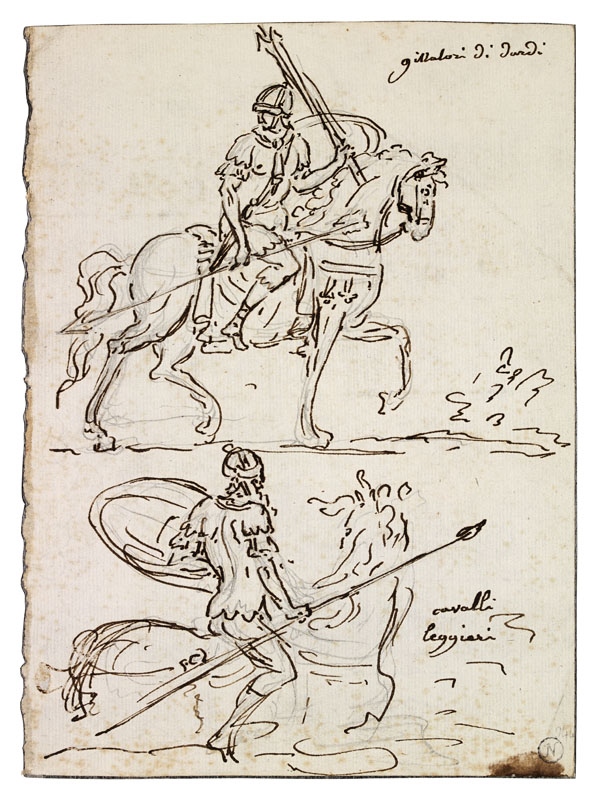 gittatori di dardi
cavalli
leggieri
N